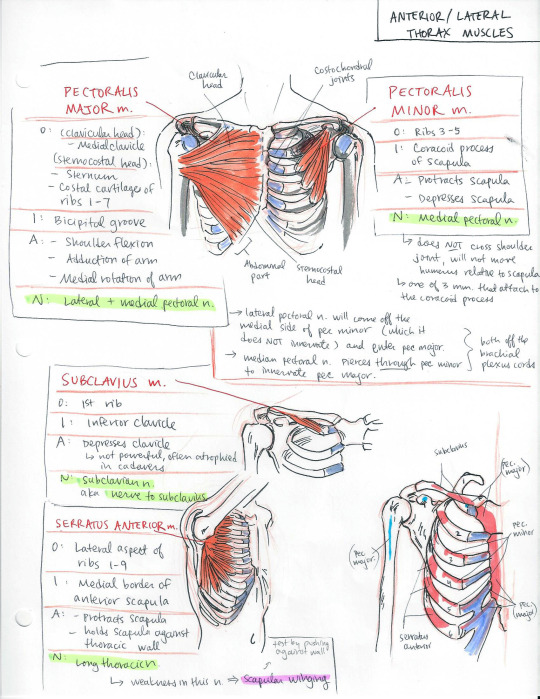 ANTERIOR / LATERAL
THORAX MUSCLES
Clavicular
head
Costochondral
joints
PECTORALIS
MAJOR m.
O: (clavicular head):
- Medial clavicle
(sternocostal head):
- Sternum
- Costal cartilages of
ribs 1-7
I: Bicipital groove
A: - Shoulder flexion
- Adduction of arm
- Medial rotation of arm
N: Lateral + medial pectoral n.
Abdominal
part
sternocostal
head
PECTORALIS
MINOR m.
O: Ribs 3-5
I: Coracoid process
of scapula
A: - Protracts scapula
- Depresses scapula
N: Medial pectoral n.
↳ does NOT cross shoulder
joint, will not move
humerus relative to scapula
↳ one of 3 mm. that attach to
the coracoid process
→ lateral pectoral n. will come off the
medial side of pec minor (which it
does NOT innervate) and enter pec major.
→ median pectoral n. pierces through pec minor
to innervate pec major.
both off the
brachial
plexus cords
SUBCLAVIUS m.
O: 1st rib
I: Inferior clavicle
A: Depresses clavicle
↳ not powerful, often atrophied
in cadavers
N: subclavian n.
aka nerve to subclavius
SERRATUS ANTERIOR m.
O: Lateral aspect of
ribs 1-9
I: Medial border of
anterior scapula
A: - protracts scapula
- holds scapula against
thoracic wall
N: Long thoracic n
↳ weakness in this n. ⇒ scapular winging
test by pushing
against wall
subclavius
pec.
(major)
pec
minor
pec
major
pec.
(major)
serratus
anterior
2
3
4
5
6